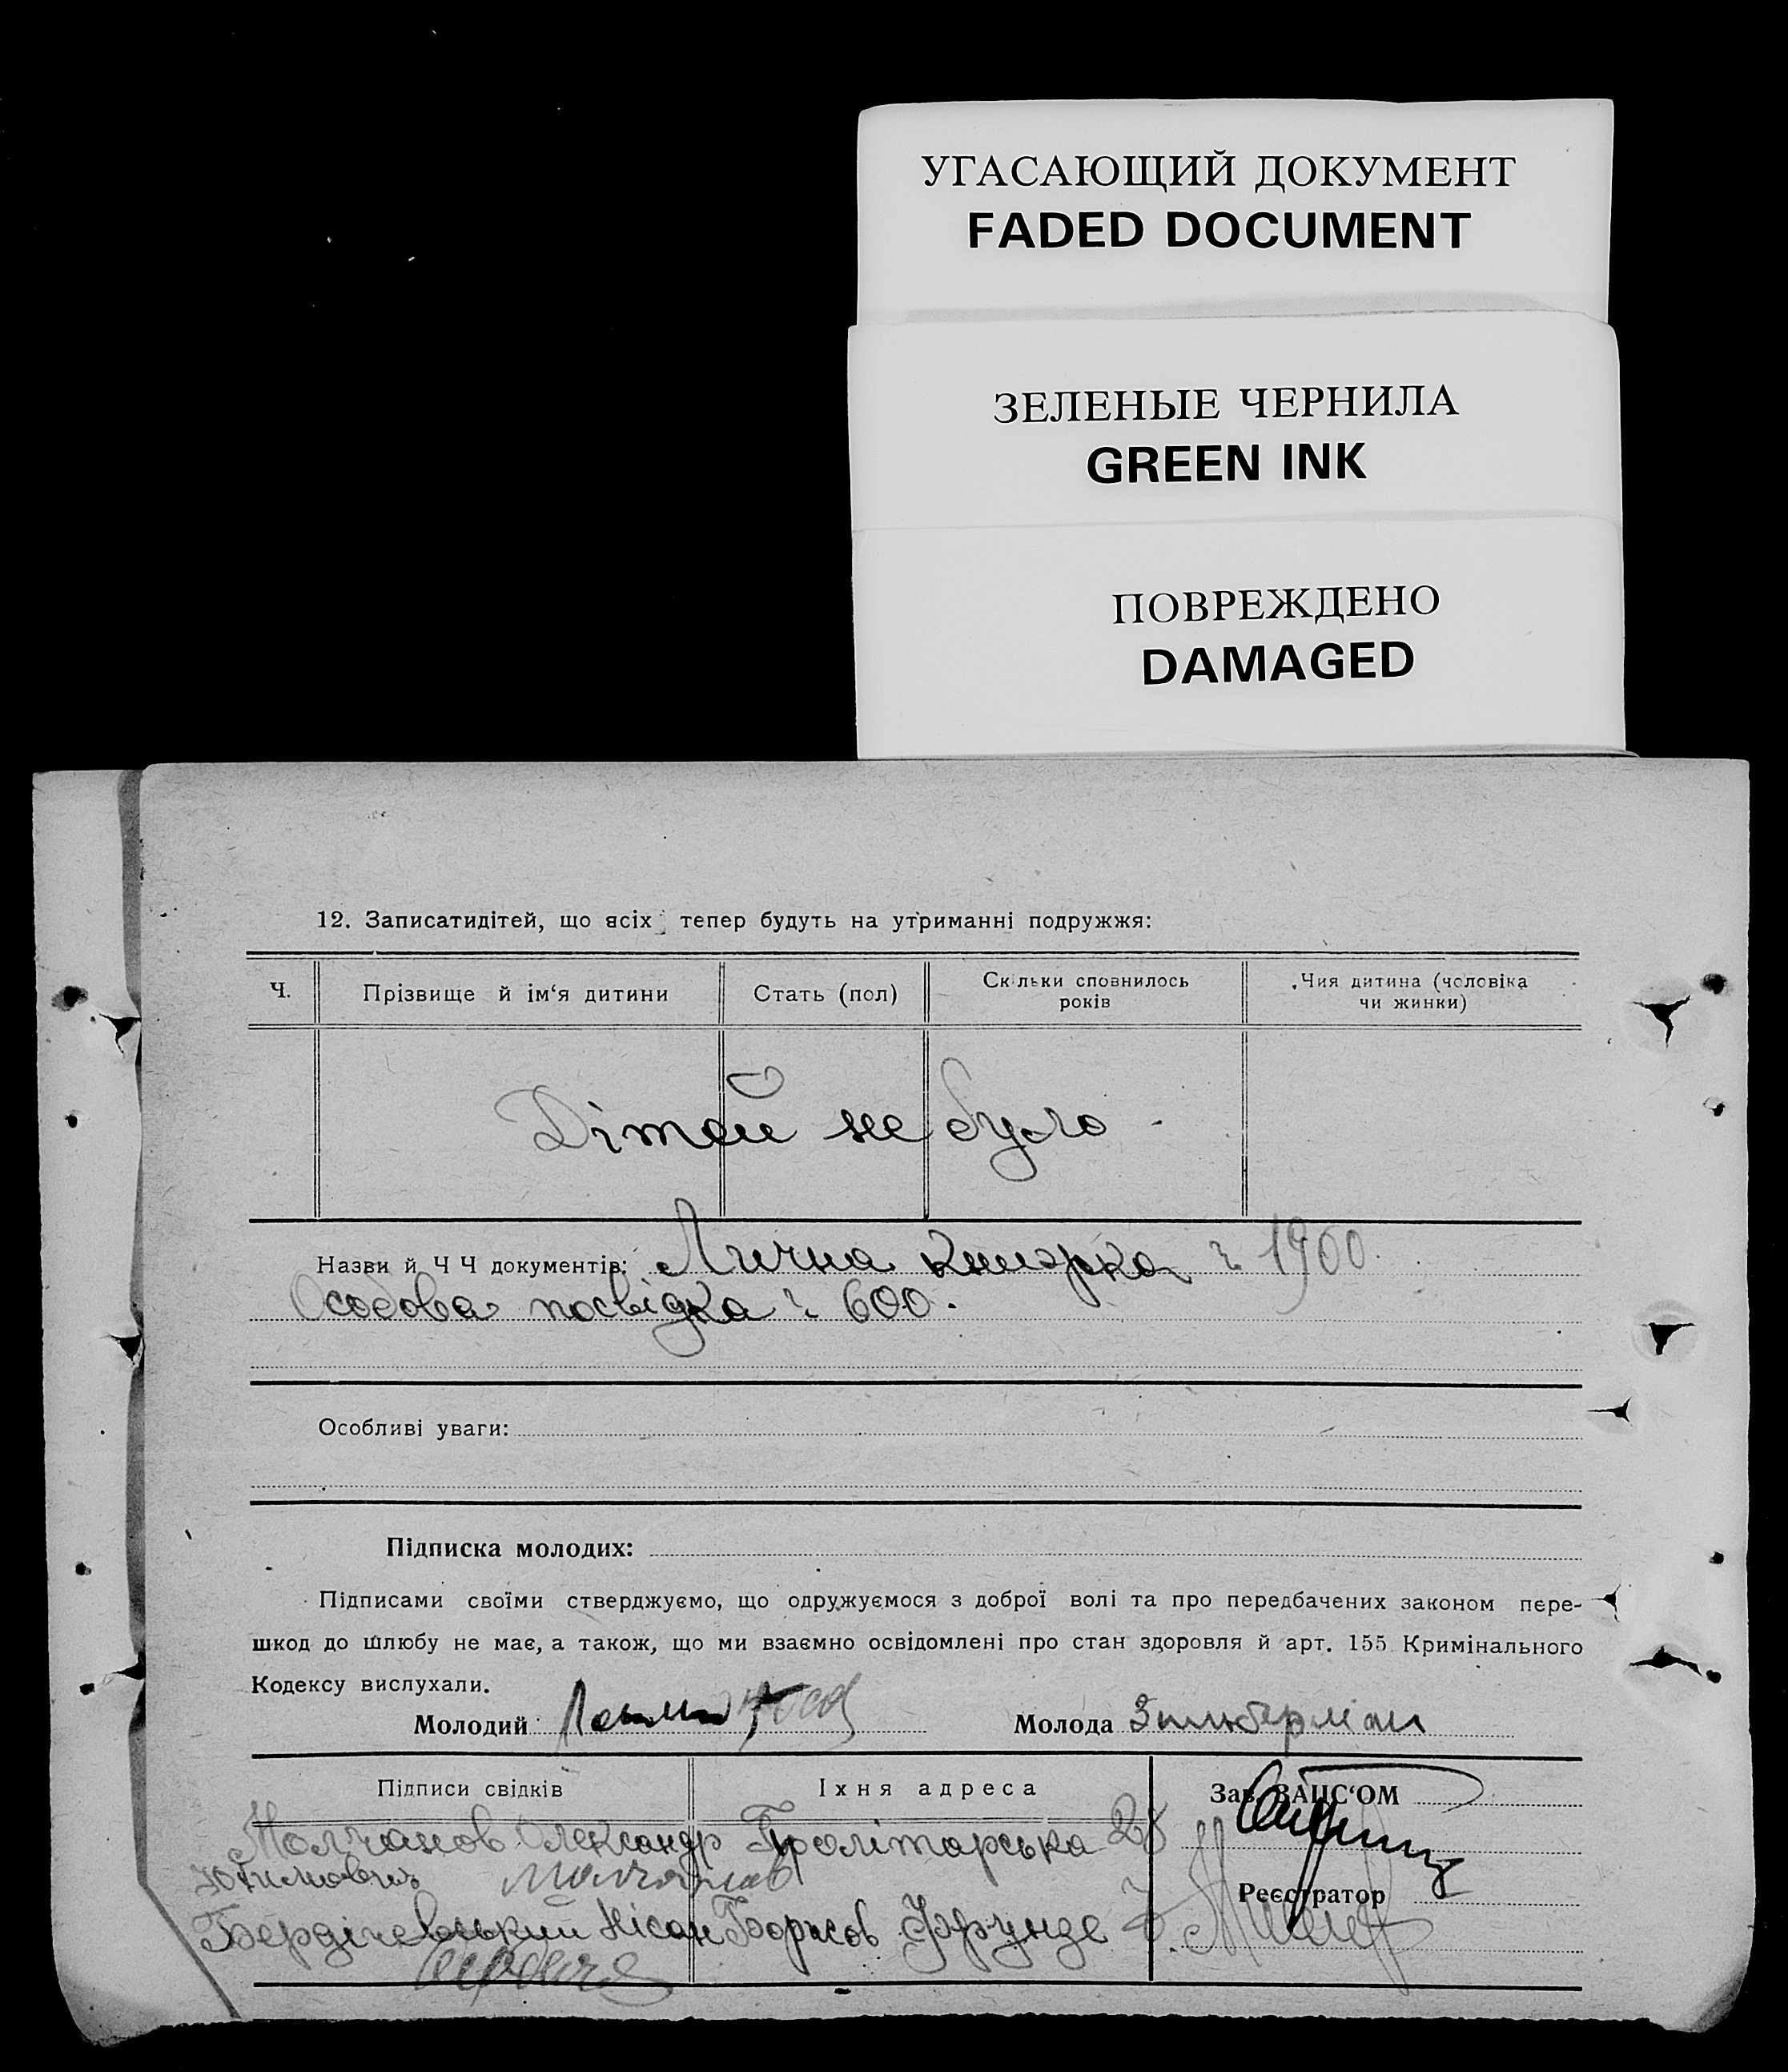 УГАСАЮЩИЙ ДОКУМЕНТ
FADED DOCUMENT
ЗЕЛЕНЫЕ ЧЕРНИЛА
GREEN INK
ПОВРЕЖДЕНО
DAMAGED
12. Записатидітей, що всіх тепер будуть на утриманні подружжя:
Ч. Прізвище й ім‘я дитини Стать (пол) Скільки сповнилось років Чия дитина (чоловіка чи жинки)
Дітей не було
Назви й Ч Ч документів: Лична книжка
Особова посвідка ч 600.
Особливі уваги:
Підписка молодих:
Підписами своїми стверджуємо, що одружуємося з доброї волі та про передбачених законом пере-
шкод до шлюбу не має, а також, що ми взаємно освідомлені про стан здоровля й арт. 155 Кримінального
Кодексу вислухали.
Молодий Молода Зильберман
Підписи свідків Їхня адреса Зав. ЗАЦС‘ОМ
Молчанов Олександр Пролітарська 28
Юхимович Молчанов
Реєстратор
Бердічевський Нісан Борисов Фрунзе